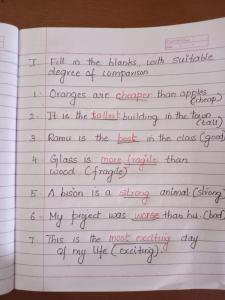 I Fill in the blanks, with suitable
degree of comparison
1. Oranges are cheaper than apples
(cheap)
2. It is the tallest building in the town
(tall)
3. Ramu is the best in the class (good)
4. Glass is more fragile than
wood (fragile)
5. A bison is a strong animal (strong)
6. My project was worse than his (bad)
7. This is the most exciting day
of my life (exciting).